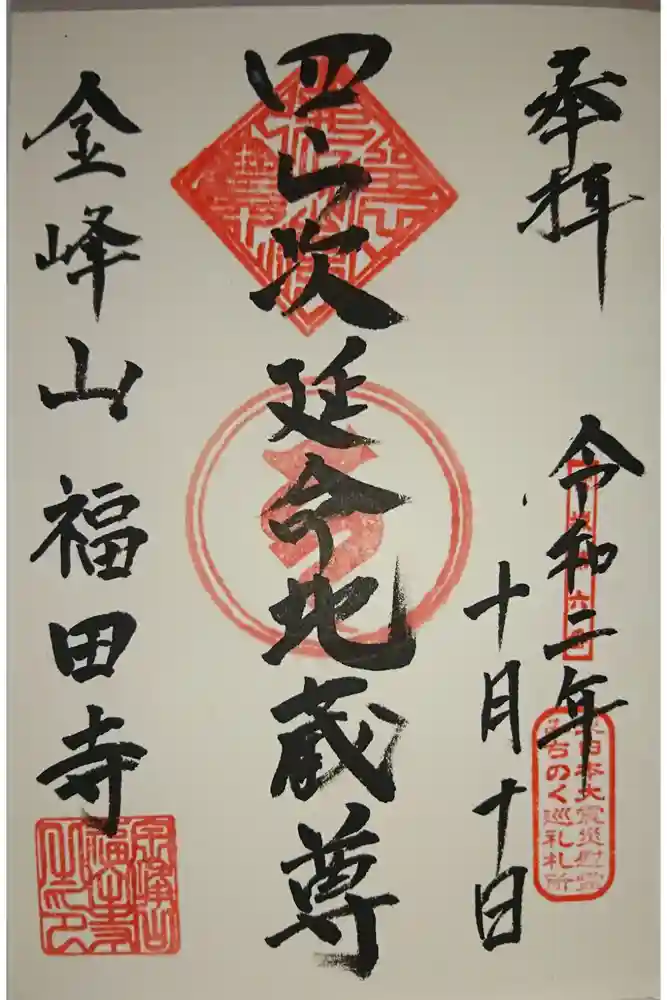 奉拝
令和二年
十月十日
四ら次延命地蔵尊
金峰山 福田寺
東日本大震災慰霊
みちのく巡礼札所
金峰山
福田寺
之印